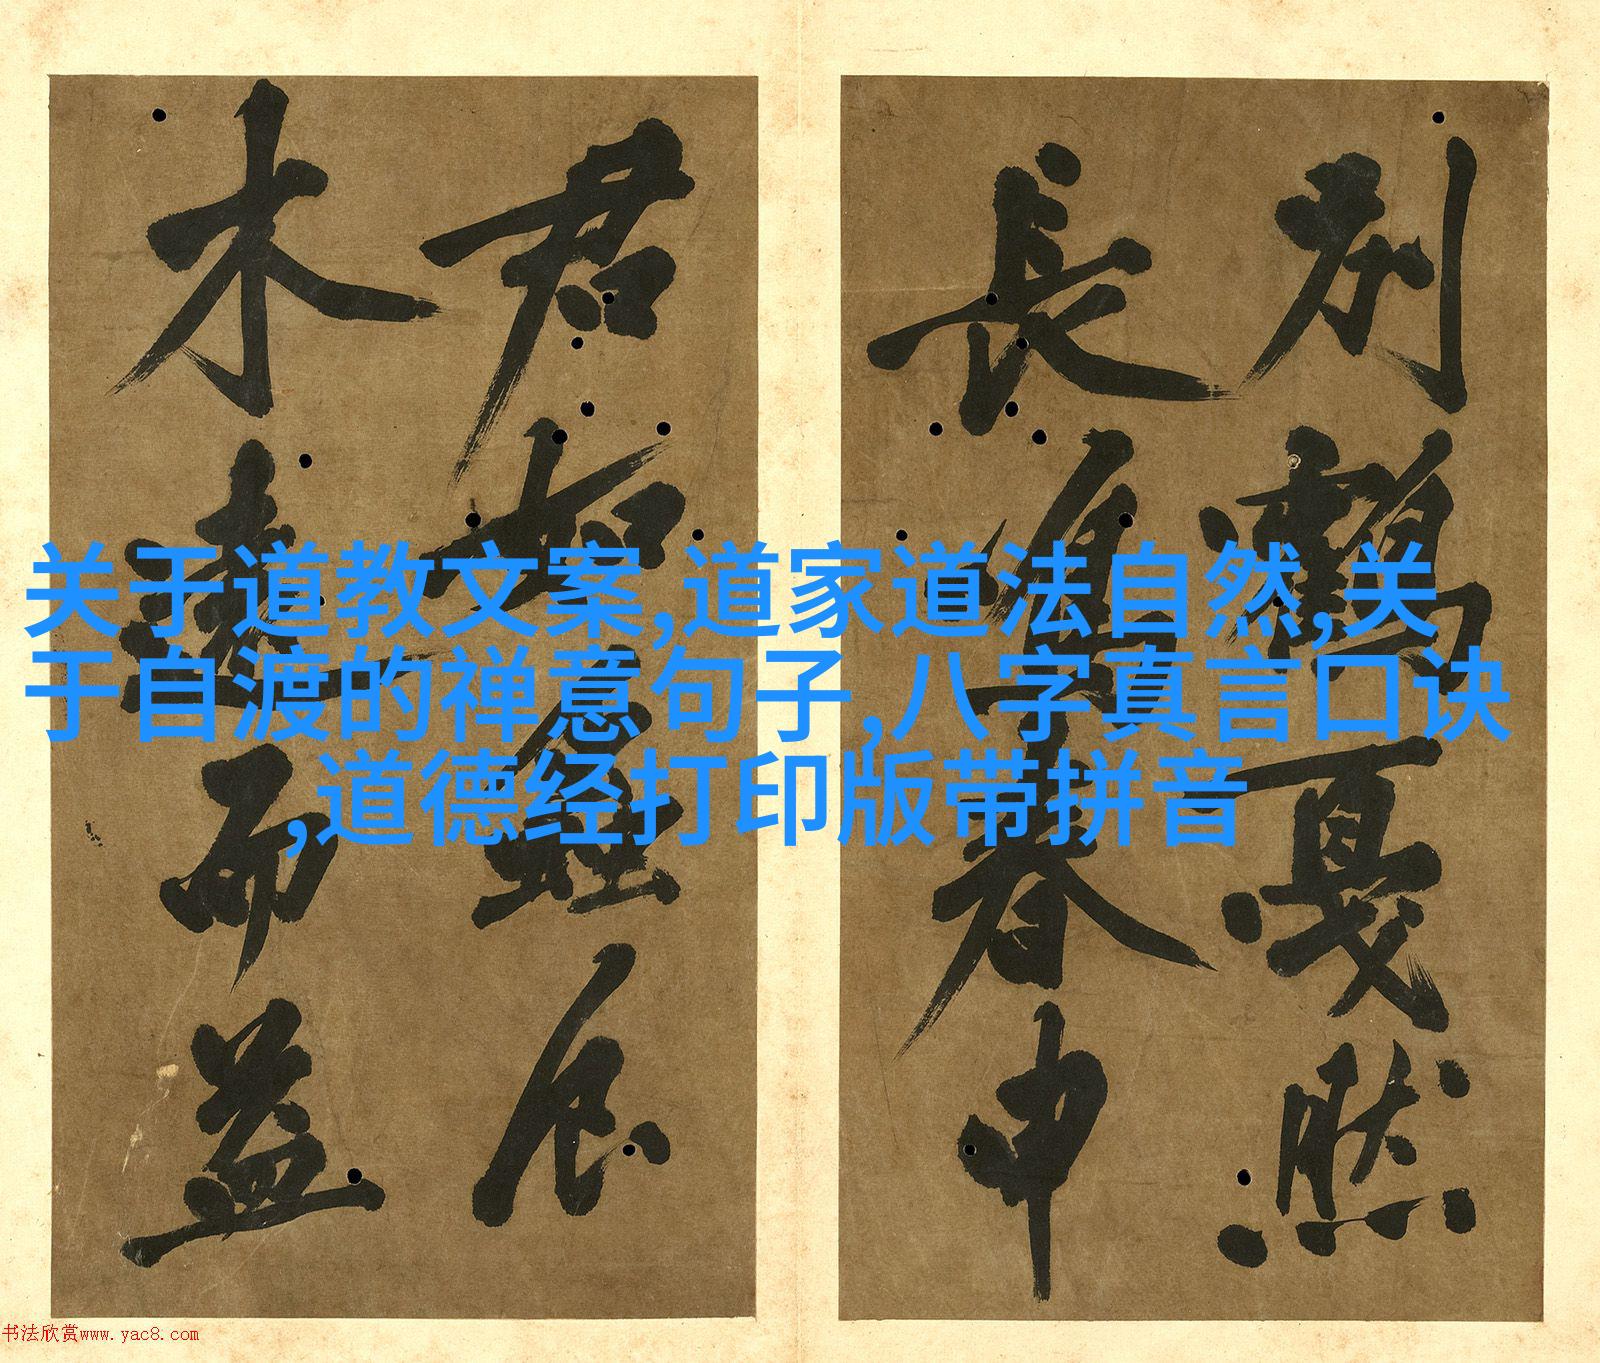 别鶴戛然
長春申
君如
木而益
关于道教文案,道家道法自然,关
于自渡的禅意句子,八字真言口诀
,道德经打印版带拼音
书法欣赏www.yac8.com